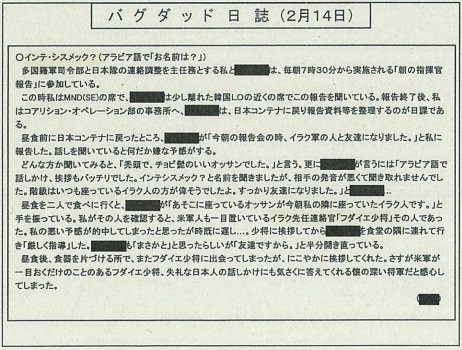 バグダッド日誌（2月14日）
○インテ・シスメック？（アラビア語で「お名前は？」）
多国籍軍司令部と日本隊の連絡調整を主任務とする私と は、毎朝7時30分から実施される「朝の指揮官
報告」に参加している。
この時私はMND(SE)の席で、 は少し離れた韓国LOの近くの席でこの報告を聞いている。報告終了後、私
はコアリション・オペレーション部の事務所へ、 は、日本コンテナに戻り報告資料等を整理するのが日課であ
る。
昼食前に日本コンテナに戻ったところ、 が「今朝の報告会の時、イラク軍の人と友達になりました。」と私に
報告した。話しを聞いていると何だか嫌な予感がする。
どんな方か聞いてみると、「禿頭で、チョビ髭のいいオッサンでした。」と言う。更に が言うには「アラビア語で
話しかけ、挨拶もバッチリでした。インテシスメック？と名前を聞きましたが、相手の発音が悪くて聞き取れませんで
した。階級はいつも座っているイラク人の方が偉そうでしたよ。すっかり友達になりました。」と ･･･。
昼食を二人で食べに行くと、 が「あそこに座っているオッサンが今朝私の隣に座っていたイラク人です。」と
手を振っている。私がその人を確認すると、米軍人も一目置いているイラク先任連絡官「フダイエ少将」その人であっ
た。私の悪い予感が的中してしまったと思ったが時既に遅し…。少将に挨拶してから を食堂の隣に連れて行
き「厳しく指導」した。 も「まさかと」思ったらしいが「友達ですから。」と半分開き直っている。
昼食後、食器を片づける所で、またフダイエ少将に出会ってしまったが、にこやかに挨拶してくれた。さすが米軍が
一目おくだけのことのあるフダイエ少将、失礼な日本人の話しかけにも気さくに答えてくれる懐の深い将軍だと感心し
てしまった。
（ ）